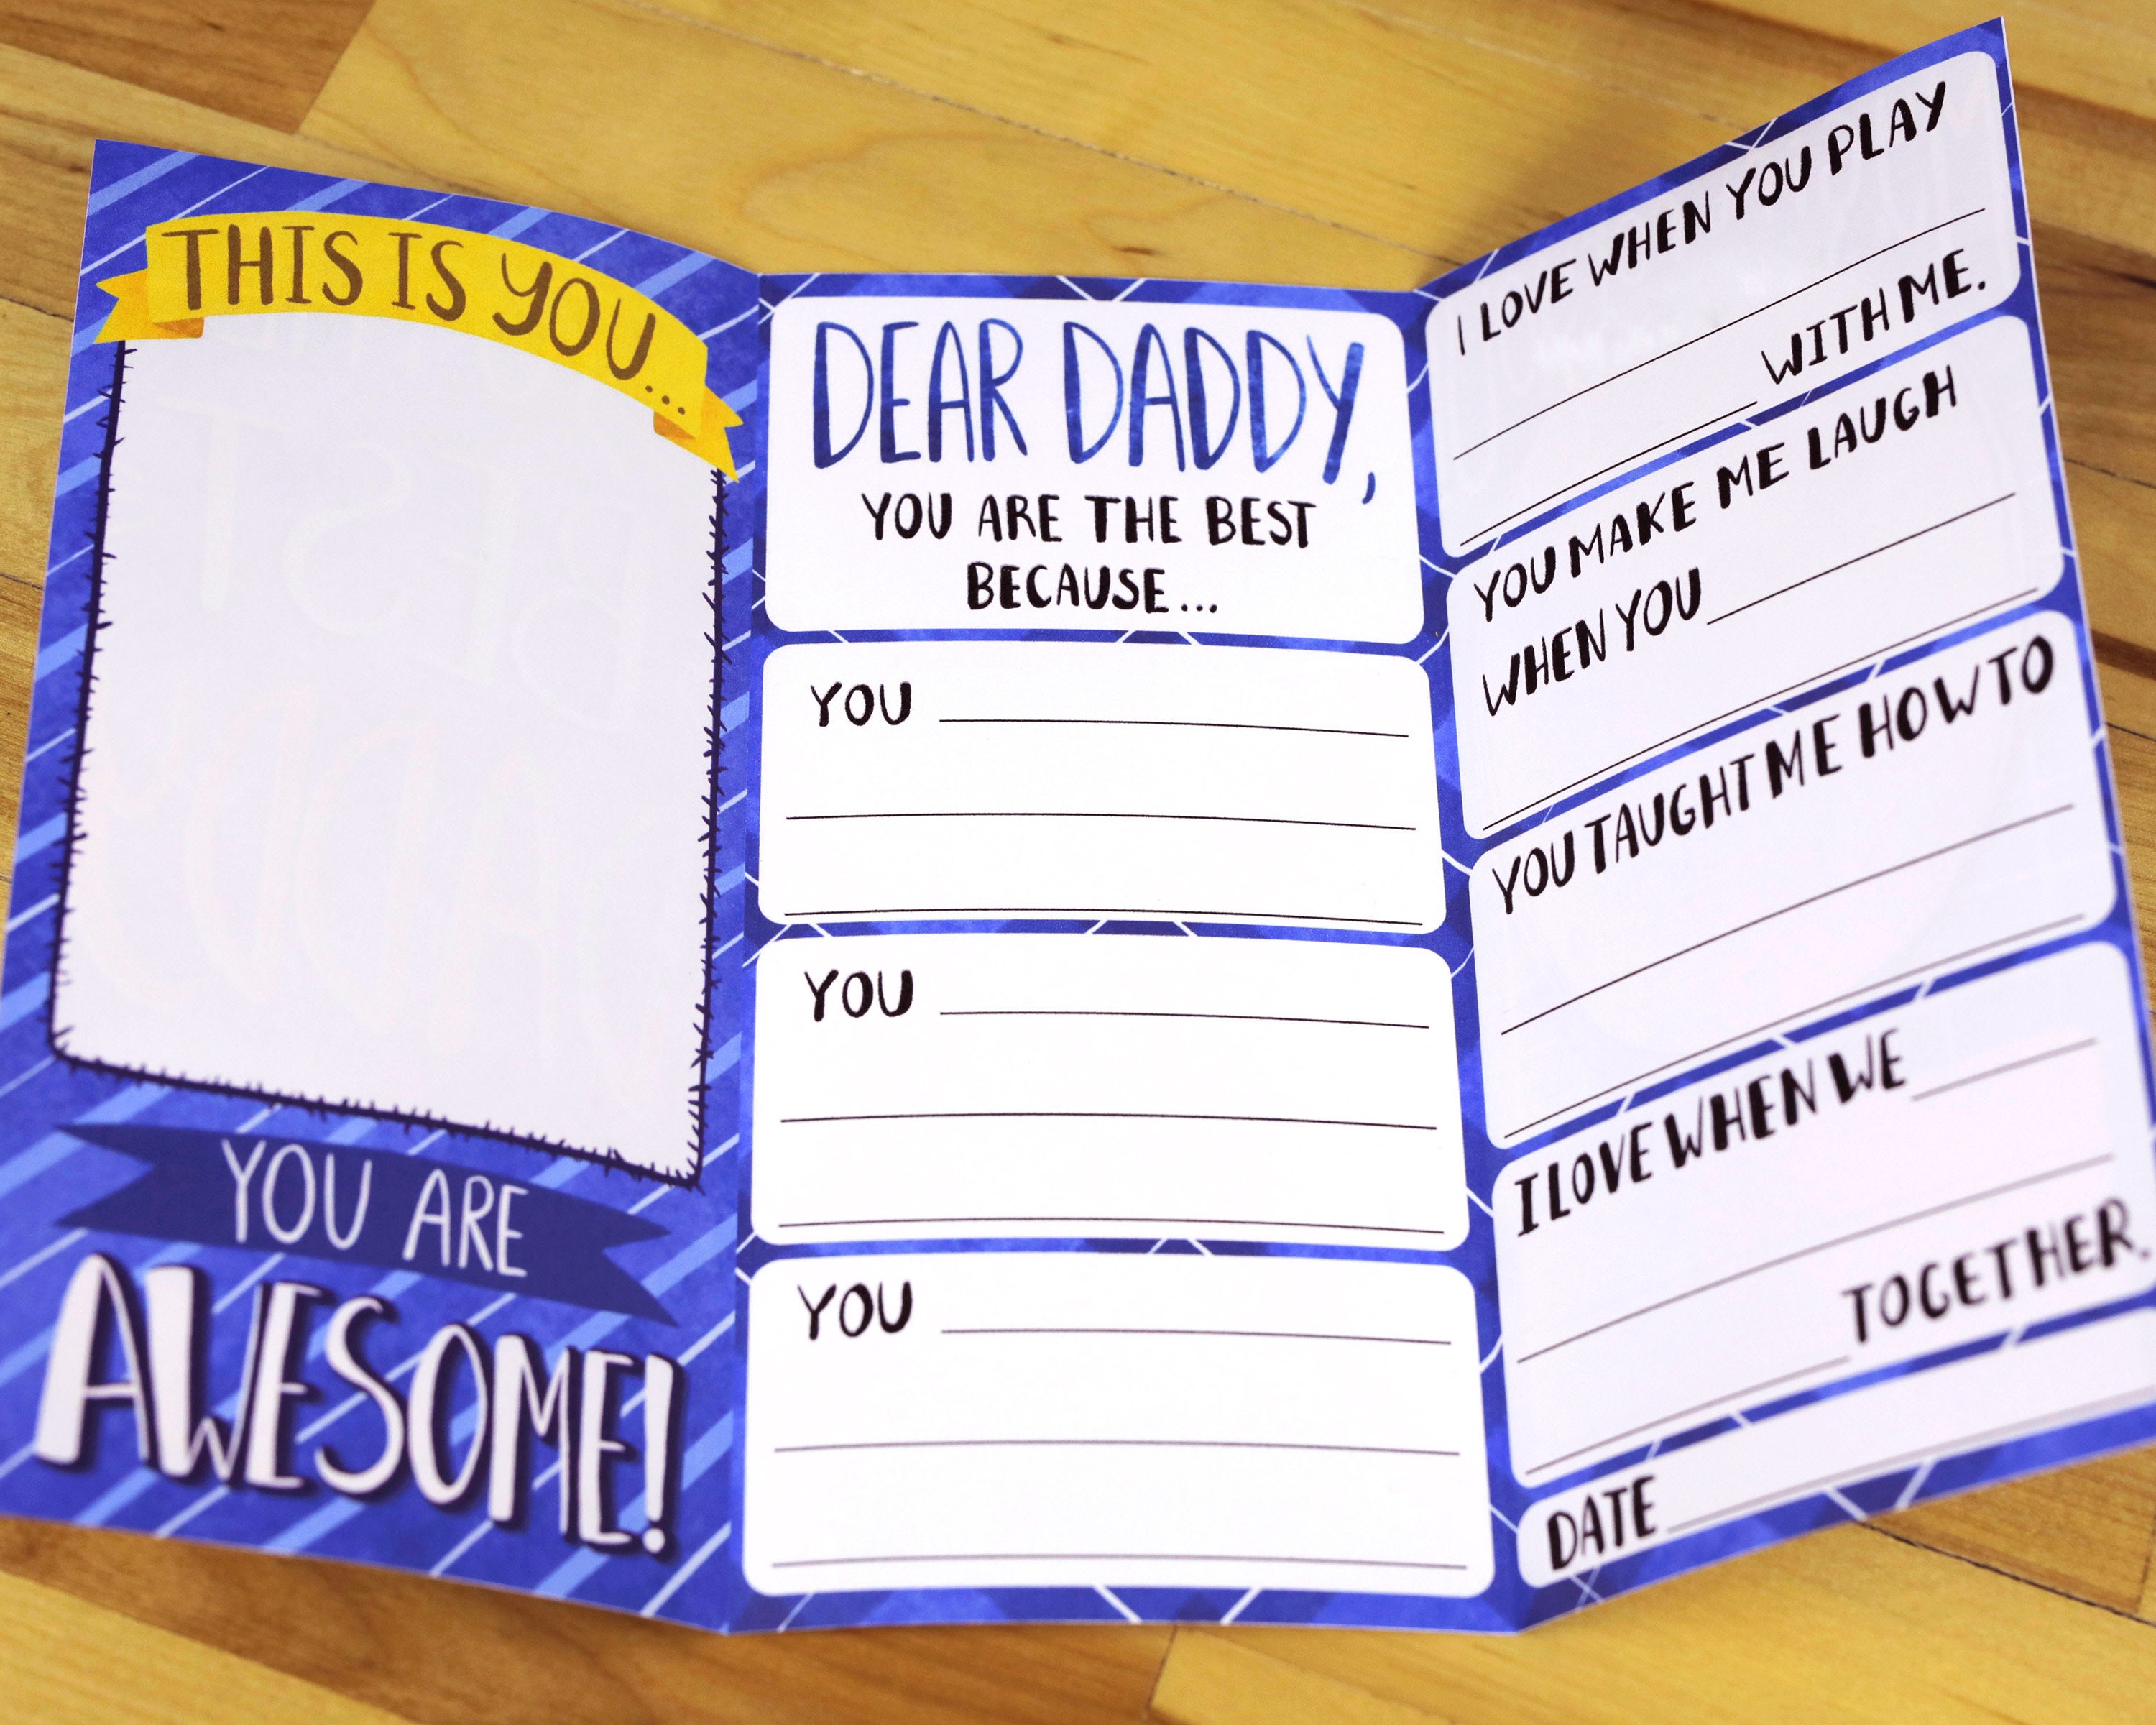 THIS IS YOU...
YOU ARE
AWESOME!
DEAR DADDY,
YOU ARE THE BEST
BECAUSE...
YOU
YOU
YOU
I LOVE WHEN YOU PLAY
WITH ME.
YOU MAKE ME LAUGH
WHEN YOU
YOU TAUGHT ME HOW TO
I LOVE WHEN WE
TOGETHER.
DATE